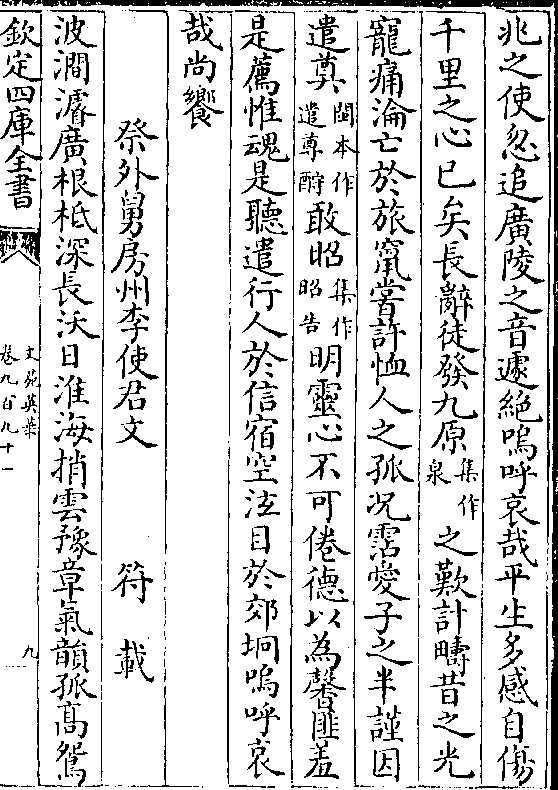 兆之使忽追廣陵之音遽絶嗚呼哀哉平生多感自傷
千里之心已矣長辭徒發九原集作泉之歎計疇昔之光
寵痛淪亡於旅竄嘗許恤人之孤况霑愛子之半謹因
遣奠閩本作遣尊酹敢昭集作昭告明靈心不可倦德以為馨匪羞
是薦惟魂是聽遣行人於信宿空泫目於郊坰嗚呼哀
哉尚饗
祭外舅房州李使君文 符載
波澗濬廣根柢深長沃日淮海捎雲豫章氣韻孤髙鴛
欽定四庫全書
文苑英華
卷九百九十一
九